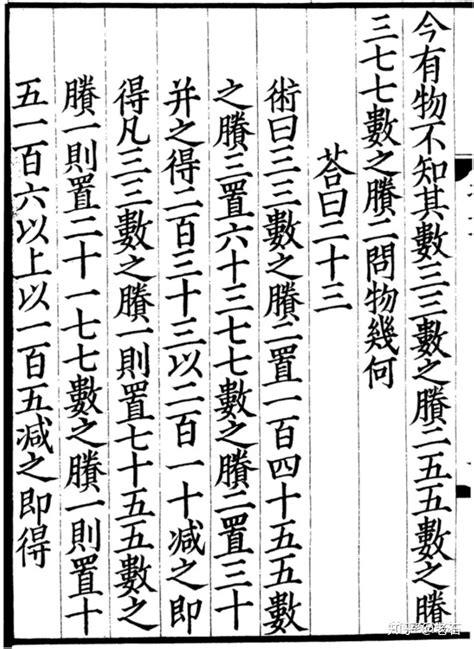 今有物不知其數三三數之賸二五五數之賸
三七七數之賸二問物幾何
荅曰二十三
術曰三三數之賸二置一百四十五五數
之賸三置六十三七七數之賸二置三十
并之得二百三十三以二百一十减之即
得凡三三數之賸一則置七十五五數之
賸一則置二十一七七數之賸一則置十
五一百六以上以一百五减之即得
知乎